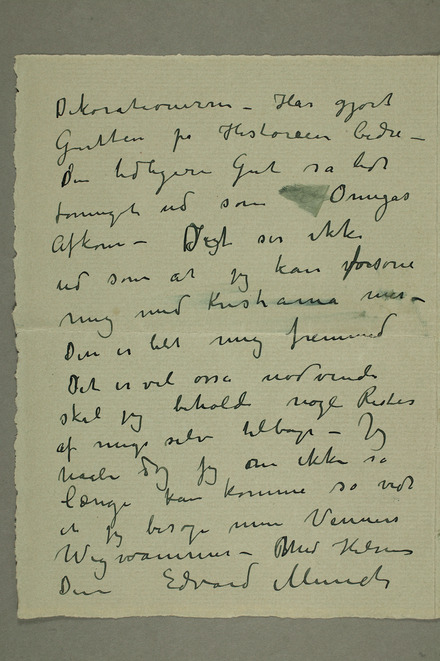 Dekorationerne – Har gjort
Gutten på Historien bedre –
Den tidligere Gut så lidt
forunget ud som Omegas
Afkom – Det ser ikke
ud som at jeg kan forsone
mig med Kristiania mer –
Den er blet mig fremmed
Det er vel osså nødvendi
skal jeg beholde nogle Rester
af mig selv tilbage – Jeg
haaber dog jeg om ikke så
længe kan komme så vidt
at jeg besøge mine Venners
Wigwammer – Med Hilsen
Din Edvard Munch